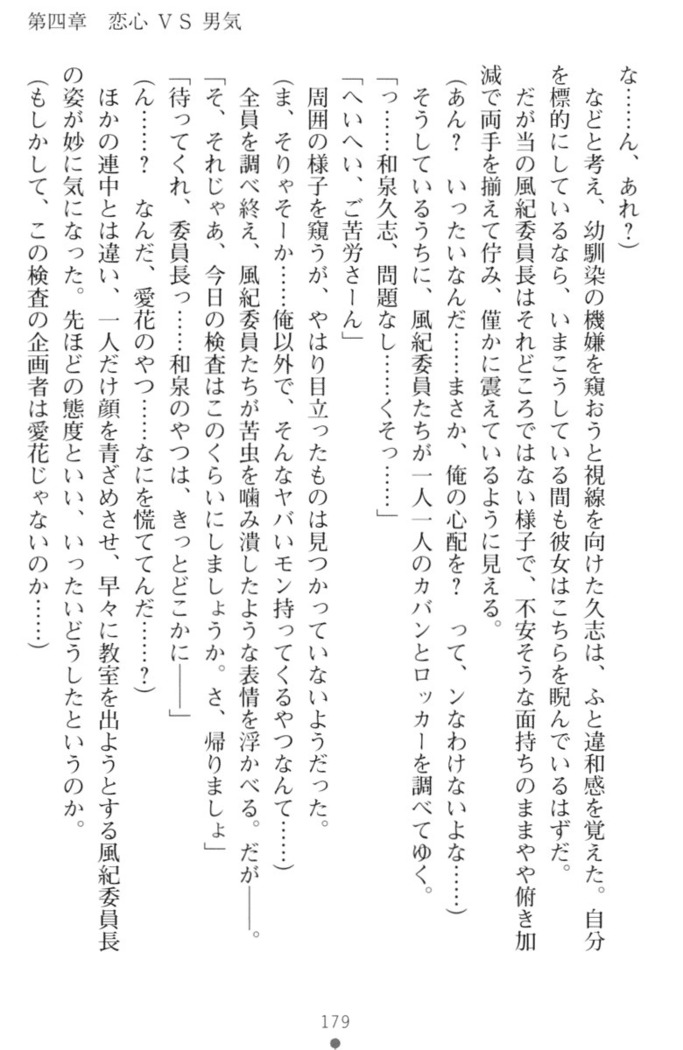 第四章　恋心 VS 男気
な……ん、あれ？)
　などと考え、幼馴染の機嫌を窺おうと視線を向けた久志は、ふと違和感を覚えた。自分
を標的にしているなら、いまこうしている間も彼女はこちらを睨んでいるはずだ。
　だが当の風紀委員長はそれどころではない様子で、不安そうな面持ちのままやや俯き加
減で両手を揃えて佇み、僅かに震えているように見える。
(あん？　いったいなんだ……まさか、俺の心配を？　って、ンなわけないよな……)
　そうしているうちに、風紀委員たちが一人一人のカバンとロッカーを調べてゆく。
「っ……和泉久志、問題なし……くそっ……」
「へいへい、ご苦労さーん」
　周囲の様子を窺うが、やはり目立ったものは見つかっていないようだった。
(ま、そりゃそーか……俺以外で、そんなヤバいモン持ってくるやつなんて……)
　全員を調べ終え、風紀委員たちが苦虫を噛み潰したような表情を浮かべる。だが――。
「そ、それじゃあ、今日の検査はこのくらいにしましょうか。さ、帰りましょ」
「待ってくれ、委員長っ……和泉のやつは、きっとどこかに――」
(ん……？　なんだ、愛花のやつ……なにを慌ててんだ……？)
　ほかの連中とは違い、一人だけ顔を青ざめさせ、早々に教室を出ようとする風紀委員長
の姿が妙に気になった。先ほどの態度といい、いったいどうしたというのか。
(もしかして、この検査の企画者は愛花じゃないのか……)
179